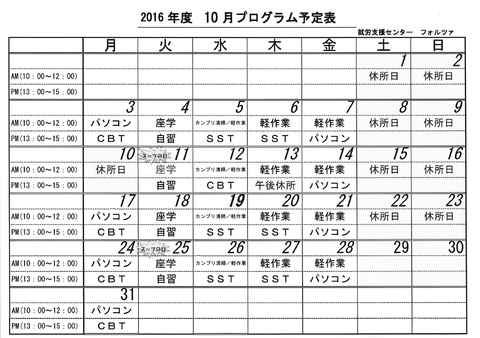 2016 年度 10 月プログラム予定表
就労支援センター フォルツァ
月 火 水 木 金 土 日
1 2
AM(10：00～12：00) 休所日 休所日
PM(13：00～15：00)
3 4 5 6 7 8 9
AM(10：00～12：00) パソコン 座学 カンプリ清掃／軽作業 軽作業 軽作業 休所日 休所日
PM(13：00～15：00) ＣＢＴ 自習 ＳＳＴ ＳＳＴ パソコン
10 スーツの日 11 12 13 14 15 16
AM(10：00～12：00) 休所日 座学 カンプリ清掃／軽作業 軽作業 軽作業 休所日 休所日
PM(13：00～15：00) 自習 ＣＢＴ 午後休所 パソコン
17 18 19 20 21 22 23
AM(10：00～12：00) パソコン 座学 カンプリ清掃／軽作業 軽作業 軽作業 休所日 休所日
PM(13：00～15：00) ＣＢＴ 自習 ＳＳＴ ＳＳＴ パソコン
24 スーツの日 25 26 27 28 29 30
AM(10：00～12：00) パソコン 座学 カンプリ清掃／軽作業 軽作業 軽作業
PM(13：00～15：00) ＣＢＴ 自習 ＳＳＴ ＳＳＴ パソコン
31
AM(10：00～12：00) パソコン
PM(13：00～15：00) ＣＢＴ